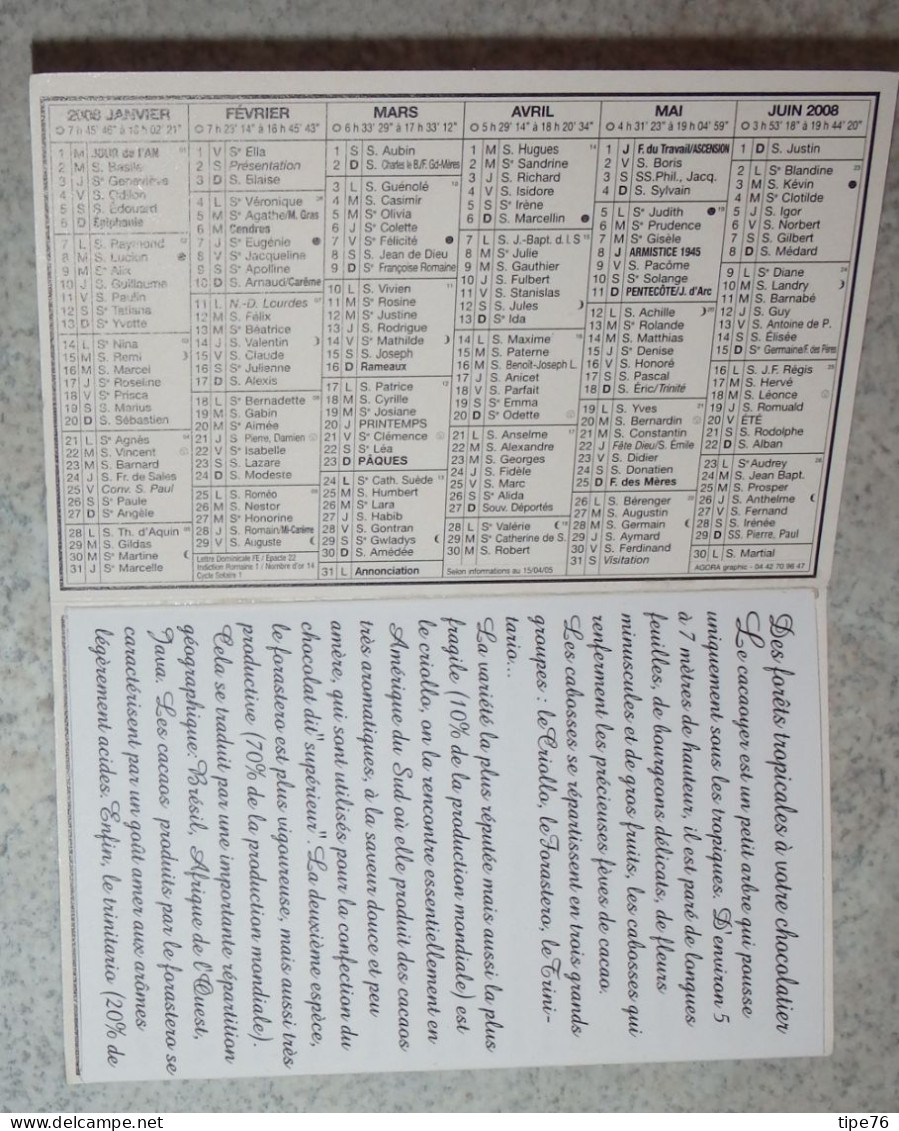 2008 JANVIER
7 h 45' 46" à 16 h 02' 21"
1 M JOUR de l'AN
2 M S. Basile
3 J Sᵉ Geneviève
4 V S. Odilon
5 S S. Édouard
6 D Epiphanie
7 L S. Raymond
8 M S. Lucien
9 M Sᵉ Alix
10 J S. Guillaume
11 V S. Paulin
12 S Sᵉ Tatiana
13 D Sᵉ Yvette
14 L Sᵉ Nina
15 M S. Remi
16 M S. Marcel
17 J Sᵉ Roseline
18 V Sᵉ Prisca
19 S S. Marius
20 D S. Sébastien
21 L Sᵉ Agnès
22 M S. Vincent
23 M S. Barnard
24 J S. Fr. de Sales
25 V Conv. S. Paul
26 S Sᵉ Paule
27 D Sᵉ Angèle
28 L S. Th. d'Aquin
29 M S. Gildas
30 M Sᵉ Martine
31 J Sᵉ Marcelle
FÉVRIER
7 h 23' 14" à 16 h 45' 43"
1 V Sᵉ Ella
2 S Présentation
3 D S. Blaise
4 L Sᵉ Véronique
5 M Sᵉ Agathe/M. Gras
6 M Cendres
7 J Sᵉ Eugénie
8 V Sᵉ Jacqueline
9 S Sᵉ Apolline
10 D S. Arnaud/Carême
11 L N.-D. Lourdes
12 M S. Félix
13 M Sᵉ Béatrice
14 J S. Valentin
15 V S. Claude
16 S Sᵉ Julienne
17 D S. Alexis
18 L Sᵉ Bernadette
19 M S. Gabin
20 M Sᵉ Aimée
21 J S. Pierre, Damien
22 V Sᵉ Isabelle
23 S S. Lazare
24 D S. Modeste
25 L S. Roméo
26 M S. Nestor
27 M Sᵉ Honorine
28 J S. Romain/Mi-Carème
29 V S. Auguste
Lettre Dominicale FE / Epacte 22
Indiction Romaine 1 / Nombre d'or 14
Cycle Solaire 1
MARS
6 h 33' 29" à 17 h 33' 12"
1 S S. Aubin
2 D S. Charles le B./F. Gd-Mères
3 L S. Guénolé
4 M S. Casimir
5 M Sᵉ Olivia
6 J Sᵉ Colette
7 V Sᵉ Félicité
8 S S. Jean de Dieu
9 D Sᵉ Françoise Romaine
10 L S. Vivien
11 M Sᵉ Rosine
12 M Sᵉ Justine
13 J S. Rodrigue
14 V Sᵉ Mathilde
15 S S. Joseph
16 D Rameaux
17 L S. Patrice
18 M S. Cyrille
19 M Sᵉ Josiane
20 J PRINTEMPS
21 V Sᵉ Clémence
22 S Sᵉ Léa
23 D PÂQUES
24 L Sᵉ Cath. Suède
25 M S. Humbert
26 M Sᵉ Lara
27 J S. Habib
28 V S. Gontran
29 S Sᵉ Gwladys
30 D S. Amédée
31 L Annonciation
AVRIL
5 h 29' 14" à 18 h 20' 34"
1 M S. Hugues
2 M Sᵉ Sandrine
3 J S. Richard
4 V S. Isidore
5 S Sᵉ Irène
6 D S. Marcellin
7 L S. J.-Bapt. d.l. S
8 M Sᵉ Julie
9 M S. Gauthier
10 J S. Fulbert
11 V S. Stanislas
12 S S. Jules
13 D Sᵉ Ida
14 L S. Maxime
15 M S. Paterne
16 M S. Benoît-Joseph L.
17 J S. Anicet
18 V S. Parfait
19 S Sᵉ Emma
20 D Sᵉ Odette
21 L S. Anselme
22 M S. Alexandre
23 M S. Georges
24 J S. Fidèle
25 V S. Marc
26 S Sᵉ Alida
27 D Souv. Déportés
28 L Sᵉ Valérie
29 M Sᵉ Catherine de S.
30 M S. Robert
Selon informations au 15/04/05
MAI
4 h 31' 23" à 19 h 04' 59"
1 J F. du Travail/ASCENSION
2 V S. Boris
3 S SS.Phil., Jacq.
4 D S. Sylvain
5 L Sᵉ Judith
6 M Sᵉ Prudence
7 M Sᵉ Gisèle
8 J ARMISTICE 1945
9 V S. Pacôme
10 S Sᵉ Solange
11 D PENTECÔTE/J. d'Arc
12 L S. Achille
13 M Sᵉ Rolande
14 M S. Matthias
15 J Sᵉ Denise
16 V S. Honoré
17 S S. Pascal
18 D S. Éric/Trinité
19 L S. Yves
20 M S. Bernardin
21 M S. Constantin
22 J Fête Dieu/S. Émile
23 V S. Didier
24 S S. Donatien
25 D F. des Mères
26 L S. Bérenger
27 M S. Augustin
28 M S. Germain
29 J S. Aymard
30 V S. Ferdinand
31 S Visitation
JUIN 2008
3 h 53' 18" à 19 h 44' 20"
1 D S. Justin
2 L Sᵉ Blandine
3 M S. Kévin
4 M Sᵉ Clotilde
5 J S. Igor
6 V S. Norbert
7 S S. Gilbert
8 D S. Médard
9 L Sᵉ Diane
10 M S. Landry
11 M S. Barnabé
12 J S. Guy
13 V S. Antoine de P.
14 S S. Élisée
15 D Sᵉ Germaine/F. des Pères
16 L S. J.F. Régis
17 M S. Hervé
18 M S. Léonce
19 J S. Romuald
20 V ÉTÉ
21 S S. Rodolphe
22 D S. Alban
23 L Sᵉ Audrey
24 M S. Jean Bapt.
25 M S. Prosper
26 J S. Anthelme
27 V S. Fernand
28 S S. Irénée
29 D SS. Pierre, Paul
30 L S. Martial
AGORA graphic - 04 42 70 96 47
Des forêts tropicales à votre chocolatier
Le cacaoyer est un petit arbre qui pousse
uniquement sous les tropiques. D'environ 5
à 7 mètres de hauteur, il est paré de longues
feuilles, de bourgeons délicats, de fleurs
minuscules et de gros fruits, les cabosses qui
renferment les précieuses fèves de cacao.
Les cabosses se répartissent en trois grands
groupes : le Criollo, le Forastero, le Trini-
tario...
La variété la plus réputée mais aussi la plus
fragile (10% de la production mondiale) est
le criollo, on la rencontre essentiellement en
Amérique du Sud où elle produit des cacaos
très aromatiques, à la saveur douce et peu
amère, qui sont utilisés pour la confection du
chocolat dit "supérieur". La deuxième espèce,
le forastero est plus vigoureuse, mais aussi très
productive (70% de la production mondiale).
Cela se traduit par une importante répartition
géographique: Brésil, Afrique de l'Ouest,
Java. Les cacaos produits par le forastero se
caractérisent par un goût amer aux arômes
légèrement acides. Enfin, le triniterio (20% de
tipe76